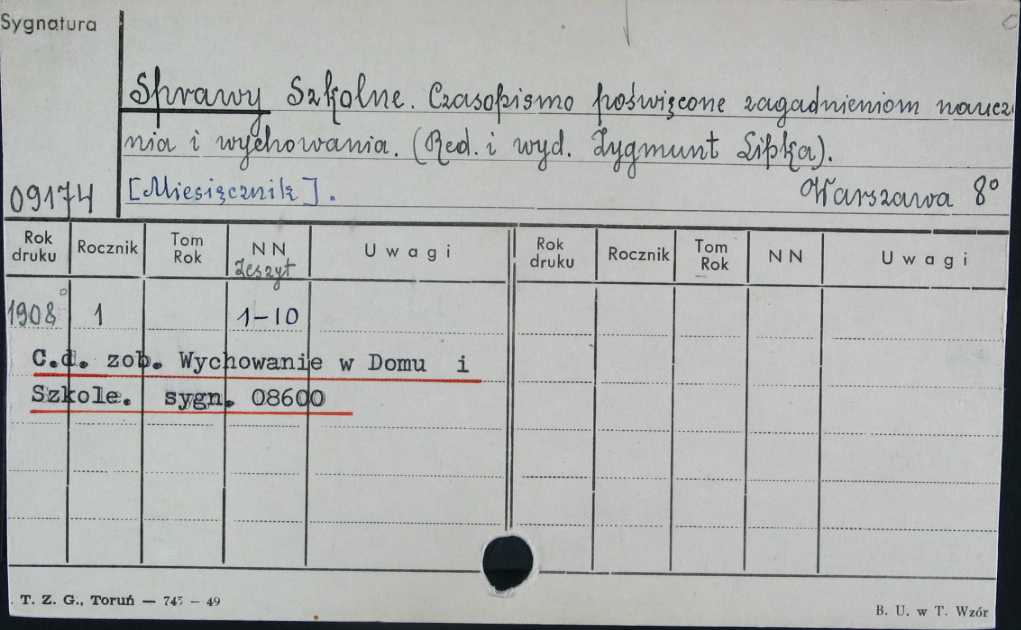 Sygnatura
Sprawy Szkolne. Czasopismo poświęcone zagadnieniom naucza
nia i wychowania. (Red. i wyd. Zygmunt Lipka).
09174 [Miesięcznik]. Warszawa 8°
Rok druku Rocznik Tom Rok NN Zeszyt Uwagi Rok druku Rocznik Tom Rok NN Uwagi
1908 1 1-10
C.d. zob. Wychowanie w Domu i
Szkole. sygn. 08600
T. Z. G., Toruń — 745 — 49
B. U. w T. Wzór